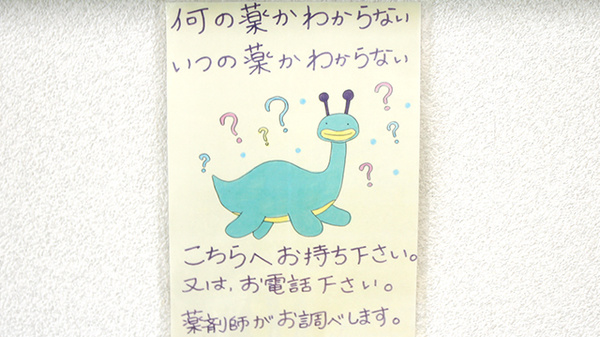 何の薬かわからない
いつの薬かわからない
? ? ? ? ? ? ?
こちらへお持ち下さい。
又は、お電話下さい。
薬剤師がお調べします。